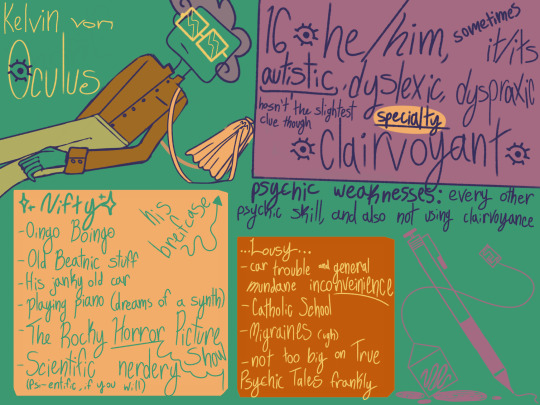 Kelvin von
Oculus
16 he/him, sometimes
it/its
autistic, dyslexic, dyspraxic
hasn't the slightest
clue though
specialty
clairvoyant
psychic weaknesses: every other
psychic skill, and also not using clairvoyance
Nifty
- Oingo Boingo
- Old Beatnic stuff
- His janky old car
- playing piano (dreams of a synth)
- The Rocky Horror Picture
Show
- Scientific nerdery
(Ps-entific, if you will)
his
breifcase
...Lousy...
- car trouble and general
mundane inconvenience
- Catholic School
- Migraines (ugh)
- not too big on True
Psychic Tales frankly